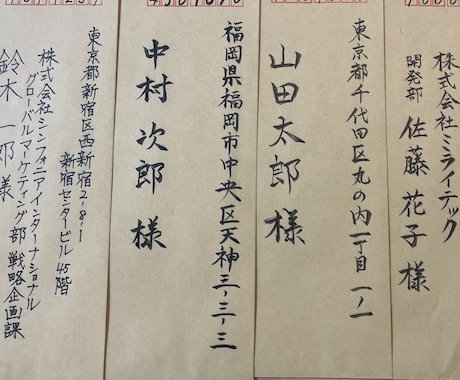 株式会社ミライテック
開発部 佐藤 花子 様
東京都千代田区丸の内一丁目一ノ一
山田太郎様
福岡県福岡市中央区天神三ノ三ノ三
中村次郎様
東京都新宿区西新宿2-8-1
新宿センタービル45階
株式会社シンフォニアインターナショナル
グローバルマーケティング部 戦略企画課
鈴木一郎様